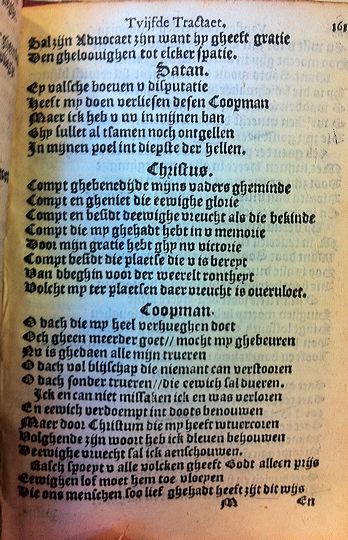 Tvijfde Tractaet. 161
Sal zijn Advocaet zijn want hy gheeft gratie
Den gheloovighen tot elcker spatie.
Satan.
Ey valsche boeven u disputatie
Heeft my doen verliesen desen Coopman
Maer ick heb v nv in mijnen ban
Ghy sullet al tsamen noch ontgellen
In mijnen poel int diepste der hellen.
Christus.
Compt ghebenedijde mijns vaders gheminde
Compt en gheniet die eewighe glorie
Compt en besidt deewighe vreucht als die bekinde
Compt die my ghehadt hebt in v memorie
Door mijn gratie hebt ghy nv victorie
Compt besidt die plaetse die v is bereyt
Van dbeghin voor der weerelt rontheyt
Volcht my ter plaetsen daer vreucht is overvloet.
Coopman.
O dach die my heel verhueghen doet
Och gheen meerder goet// mocht my ghebeuren
Nv is ghedaen alle mijn trueren
O dach vol blijschap die niemant can verstooren
O dach sonder trueren//die eewich sal dueren.
Ick en can niet missaken ick en was verloren
En eewich verdoempt int doots benouwen
Maer door Christum die my heeft vercoren
Volghende zijn woort heb ick dleven behouwen
Deewighe vruecht sal ick aenschouwen.
Rasch spoeyt v alle volcken gheeft Godt alleen prijs
Eewighen lof moet hem toe vloeyen
Die ons menschen soo lief ghehadt heeft zijt dit wijs
M En